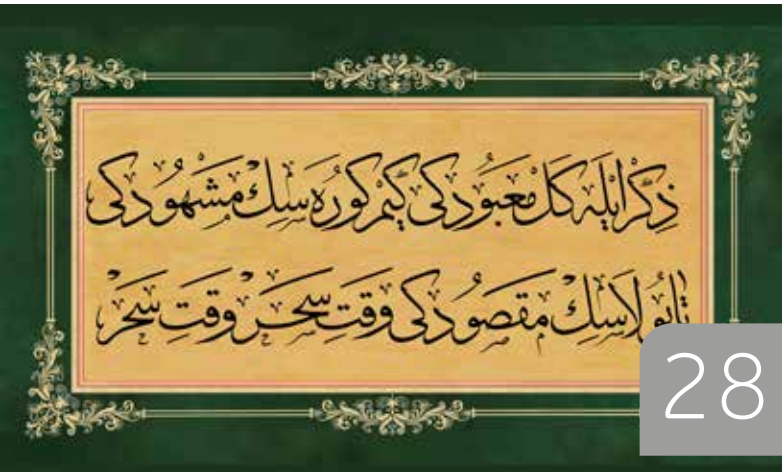 ذِكْرْ اَيْلَه كَلْ مَعْبُودِكِى كِيمْ كُورَه سِكْ مَشْهُودِكِى
تَا بُولَاسِكْ مَقْصُودِكِى وَقْتِ سَحَرْ وَقْتِ سَحَرْ
28